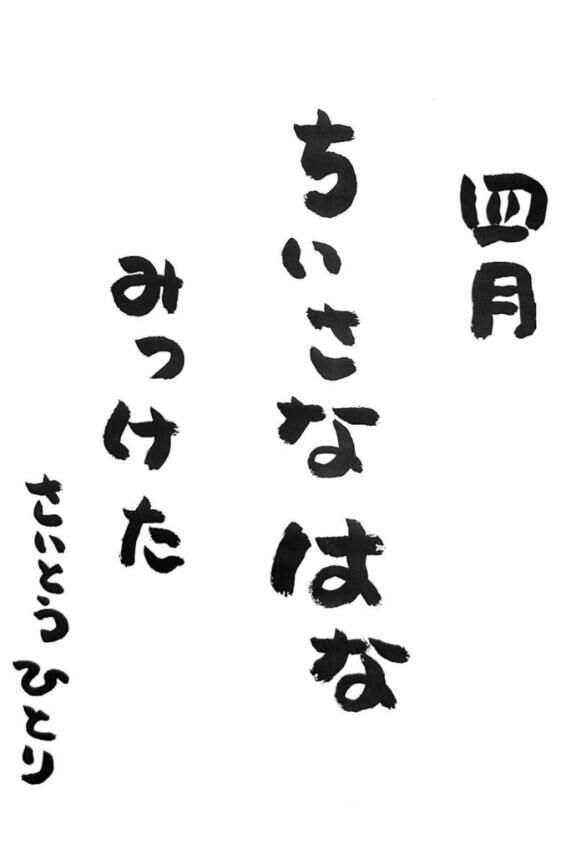 四月
ちいさなはな
みつけた
さいとうひとり